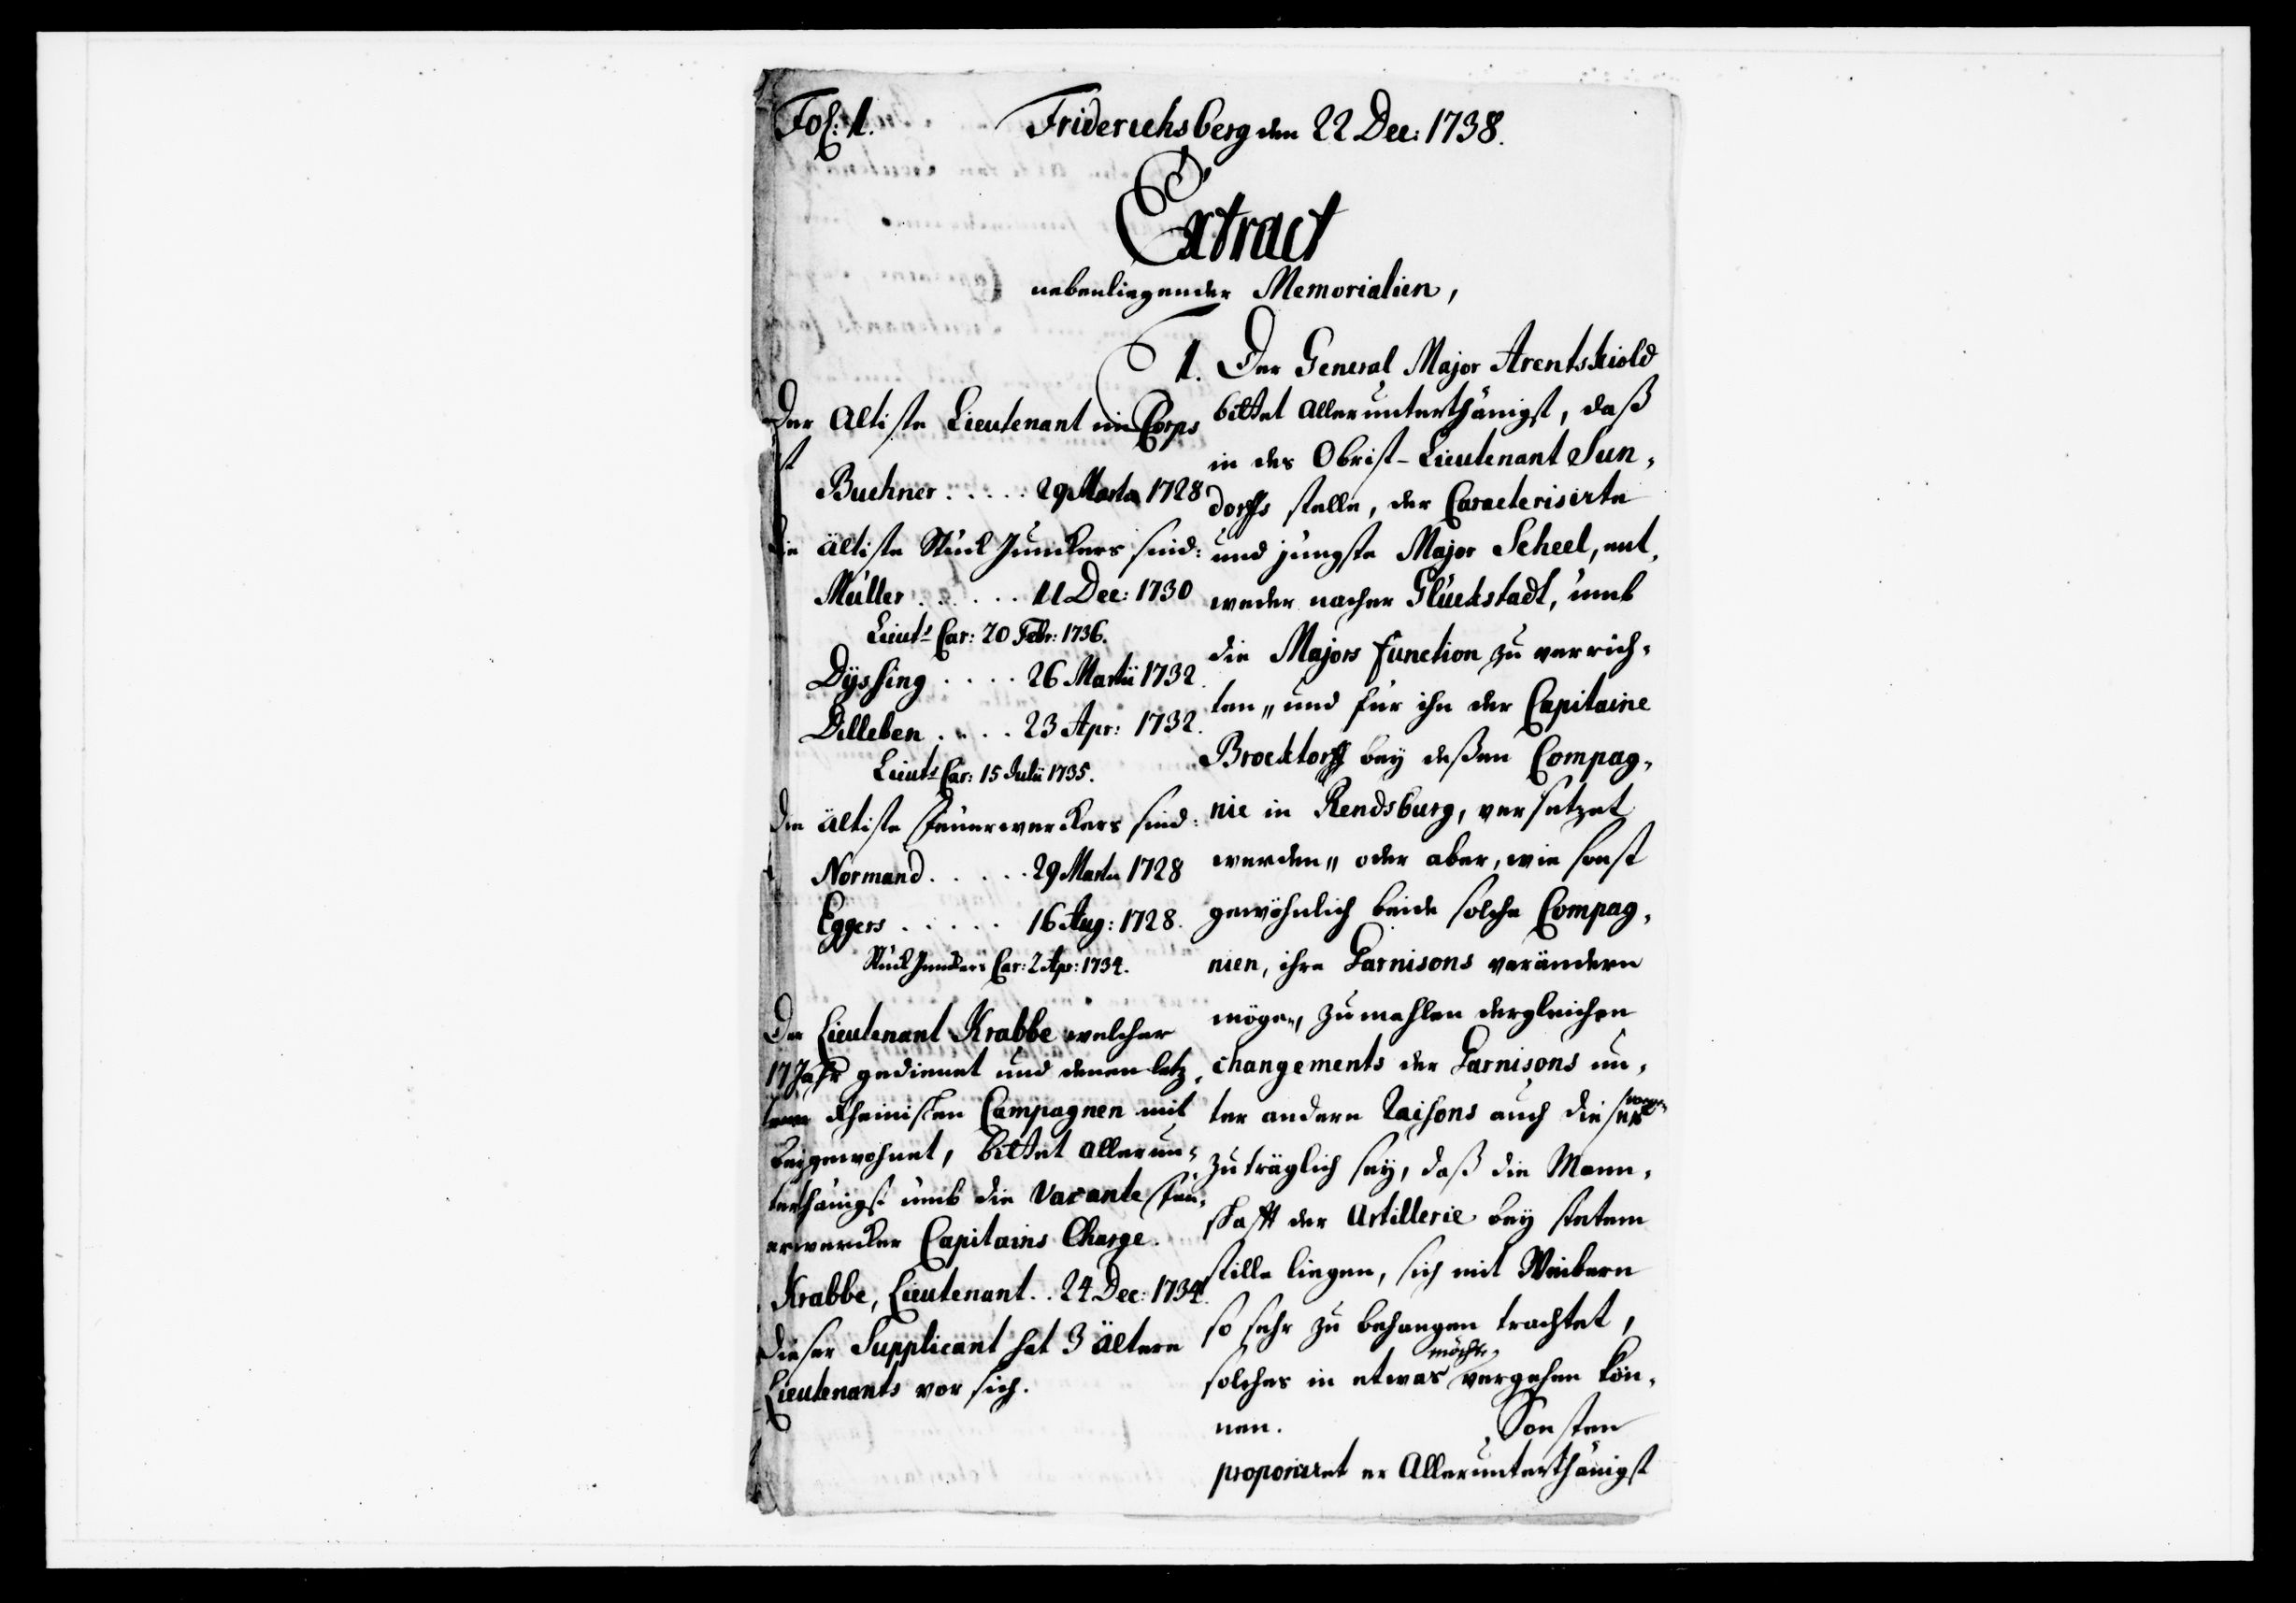 Fol: 1.
Friderichsberg den 22 Dec: 1738.
Extract
nebenliegender Memorialien,
Der Altiste Lieutenant im Corps
ist
Buchner ..... 29 Martii 1728
Die ältiste Stück Junckers sind:
Müller ...... 11 Dec: 1730
Lieuts Car: 20 Febr: 1736.
Dyssing .... 26 Martii 1732.
Dilleben .... 23 Apr: 1732.
Lieuts Car: 15 Julii 1735.
Die ältiste Feuerwerckers sind:
Normand ..... 29 Martii 1728
Eggers ..... 16 Aug: 1728.
Stück Junckers Car: 2 Apr: 1734.
Der Lieutenant Krabbe welcher
17 Jahr gedienet und denen letz-
tern Rheinischen Campagnen mit
beigewohnet, bittet allerun-
terthänigst umb die Vacante Feu-
erwercker Capitains Charge.
Krabbe, Lieutenant .. 24 Dec: 1734.
Dieser Supplicant hat 3 ältere
Lieutenants vor sich.
1. Der General Major Arentskiold
bittet allerunterthänigst, daß
in des Obrist-Lieutenant Sun-
dorffs stelle, der Caracterisirte
und jüngste Major Scheel, ent-
weder nacher Glückstadt, umb
die Majors function zu verrich-
ten,, und für ihn der Capitaine
Brocktorff bey deßen Compag-
nie in Rendsburg, versetzet
werden,, oder aber, wie sonst
gewöhnlich beide solche Compag-
nien, ihre Garnisons verändern
mögen, zumahlen dergleichen
changements der Garnisons un-
ter andern Raisons auch dieser wegen
zuträglich sey, daß die Mann-
schafft der Artillerie bey stetem
stille liegen, sich mit Weibern
so sehr zu behangen trachtet,
solches in etwas möchte vergehen kön-
nen. Sonsten
proponiret er Allerunterthänigst